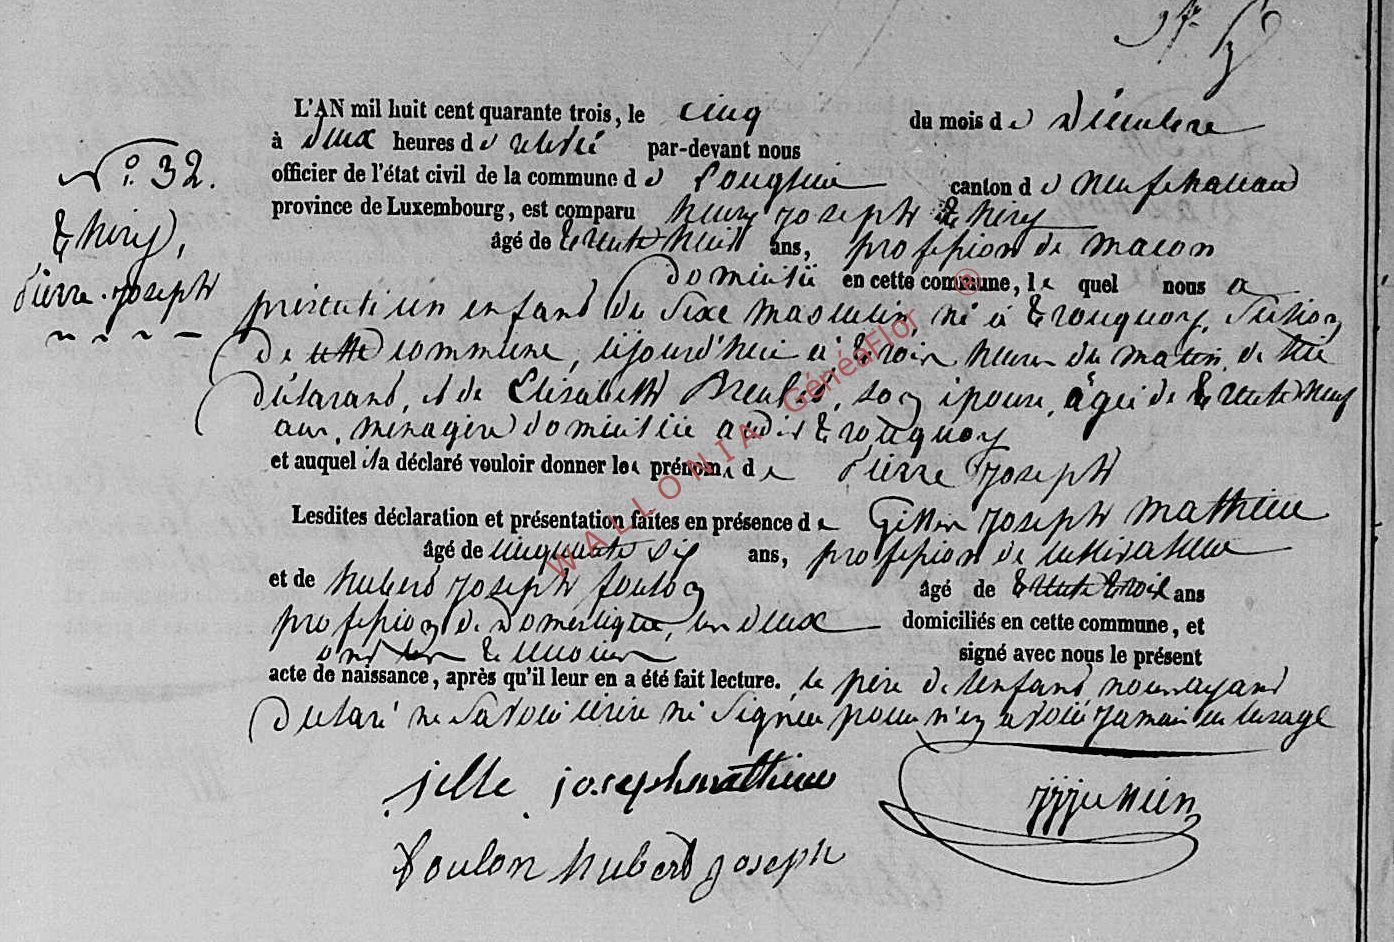 L'AN mil huit cent quarante trois, le cinq du mois de Décembre
à deux heures de relevé par-devant nous
officier de l'état civil de la commune de Longlier canton de Neufchateau
N.° 32.
province de Luxembourg, est comparu henry joseph thiry
Thiry,
âgé de trente huit ans, profession de macon
Pierre joseph
domicilié en cette commune, le quel nous a
présenté un enfant du sexe masculin, né à tronquoy, section
de cette commune, cejourd'hui à trois heures du matin, de lui
déclarant, et de Elisabeth son épouse, âgée de trente neuf
ans, menagère domiciliée audit tronquoy
et auquel il a déclaré vouloir donner les prénoms de Pierre joseph
Lesdites déclaration et présentation faites en présence de joseph Mathieu
âgé de cinquante six ans, profession de cultivateur
et de hubert joseph foulon âgé de trente trois ans
profession de domestique, les deux domiciliés en cette commune, et
ont les témoins signé avec nous le présent
acte de naissance, après qu'il leur en a été fait lecture. le père de l'enfant nous ayant
déclaré ne savoir écrire ni signer pour n'en avoir jamais eu l'usage
jille joseph mathieu
foulon hubert joseph
WALLONIA GénéaFlor ®